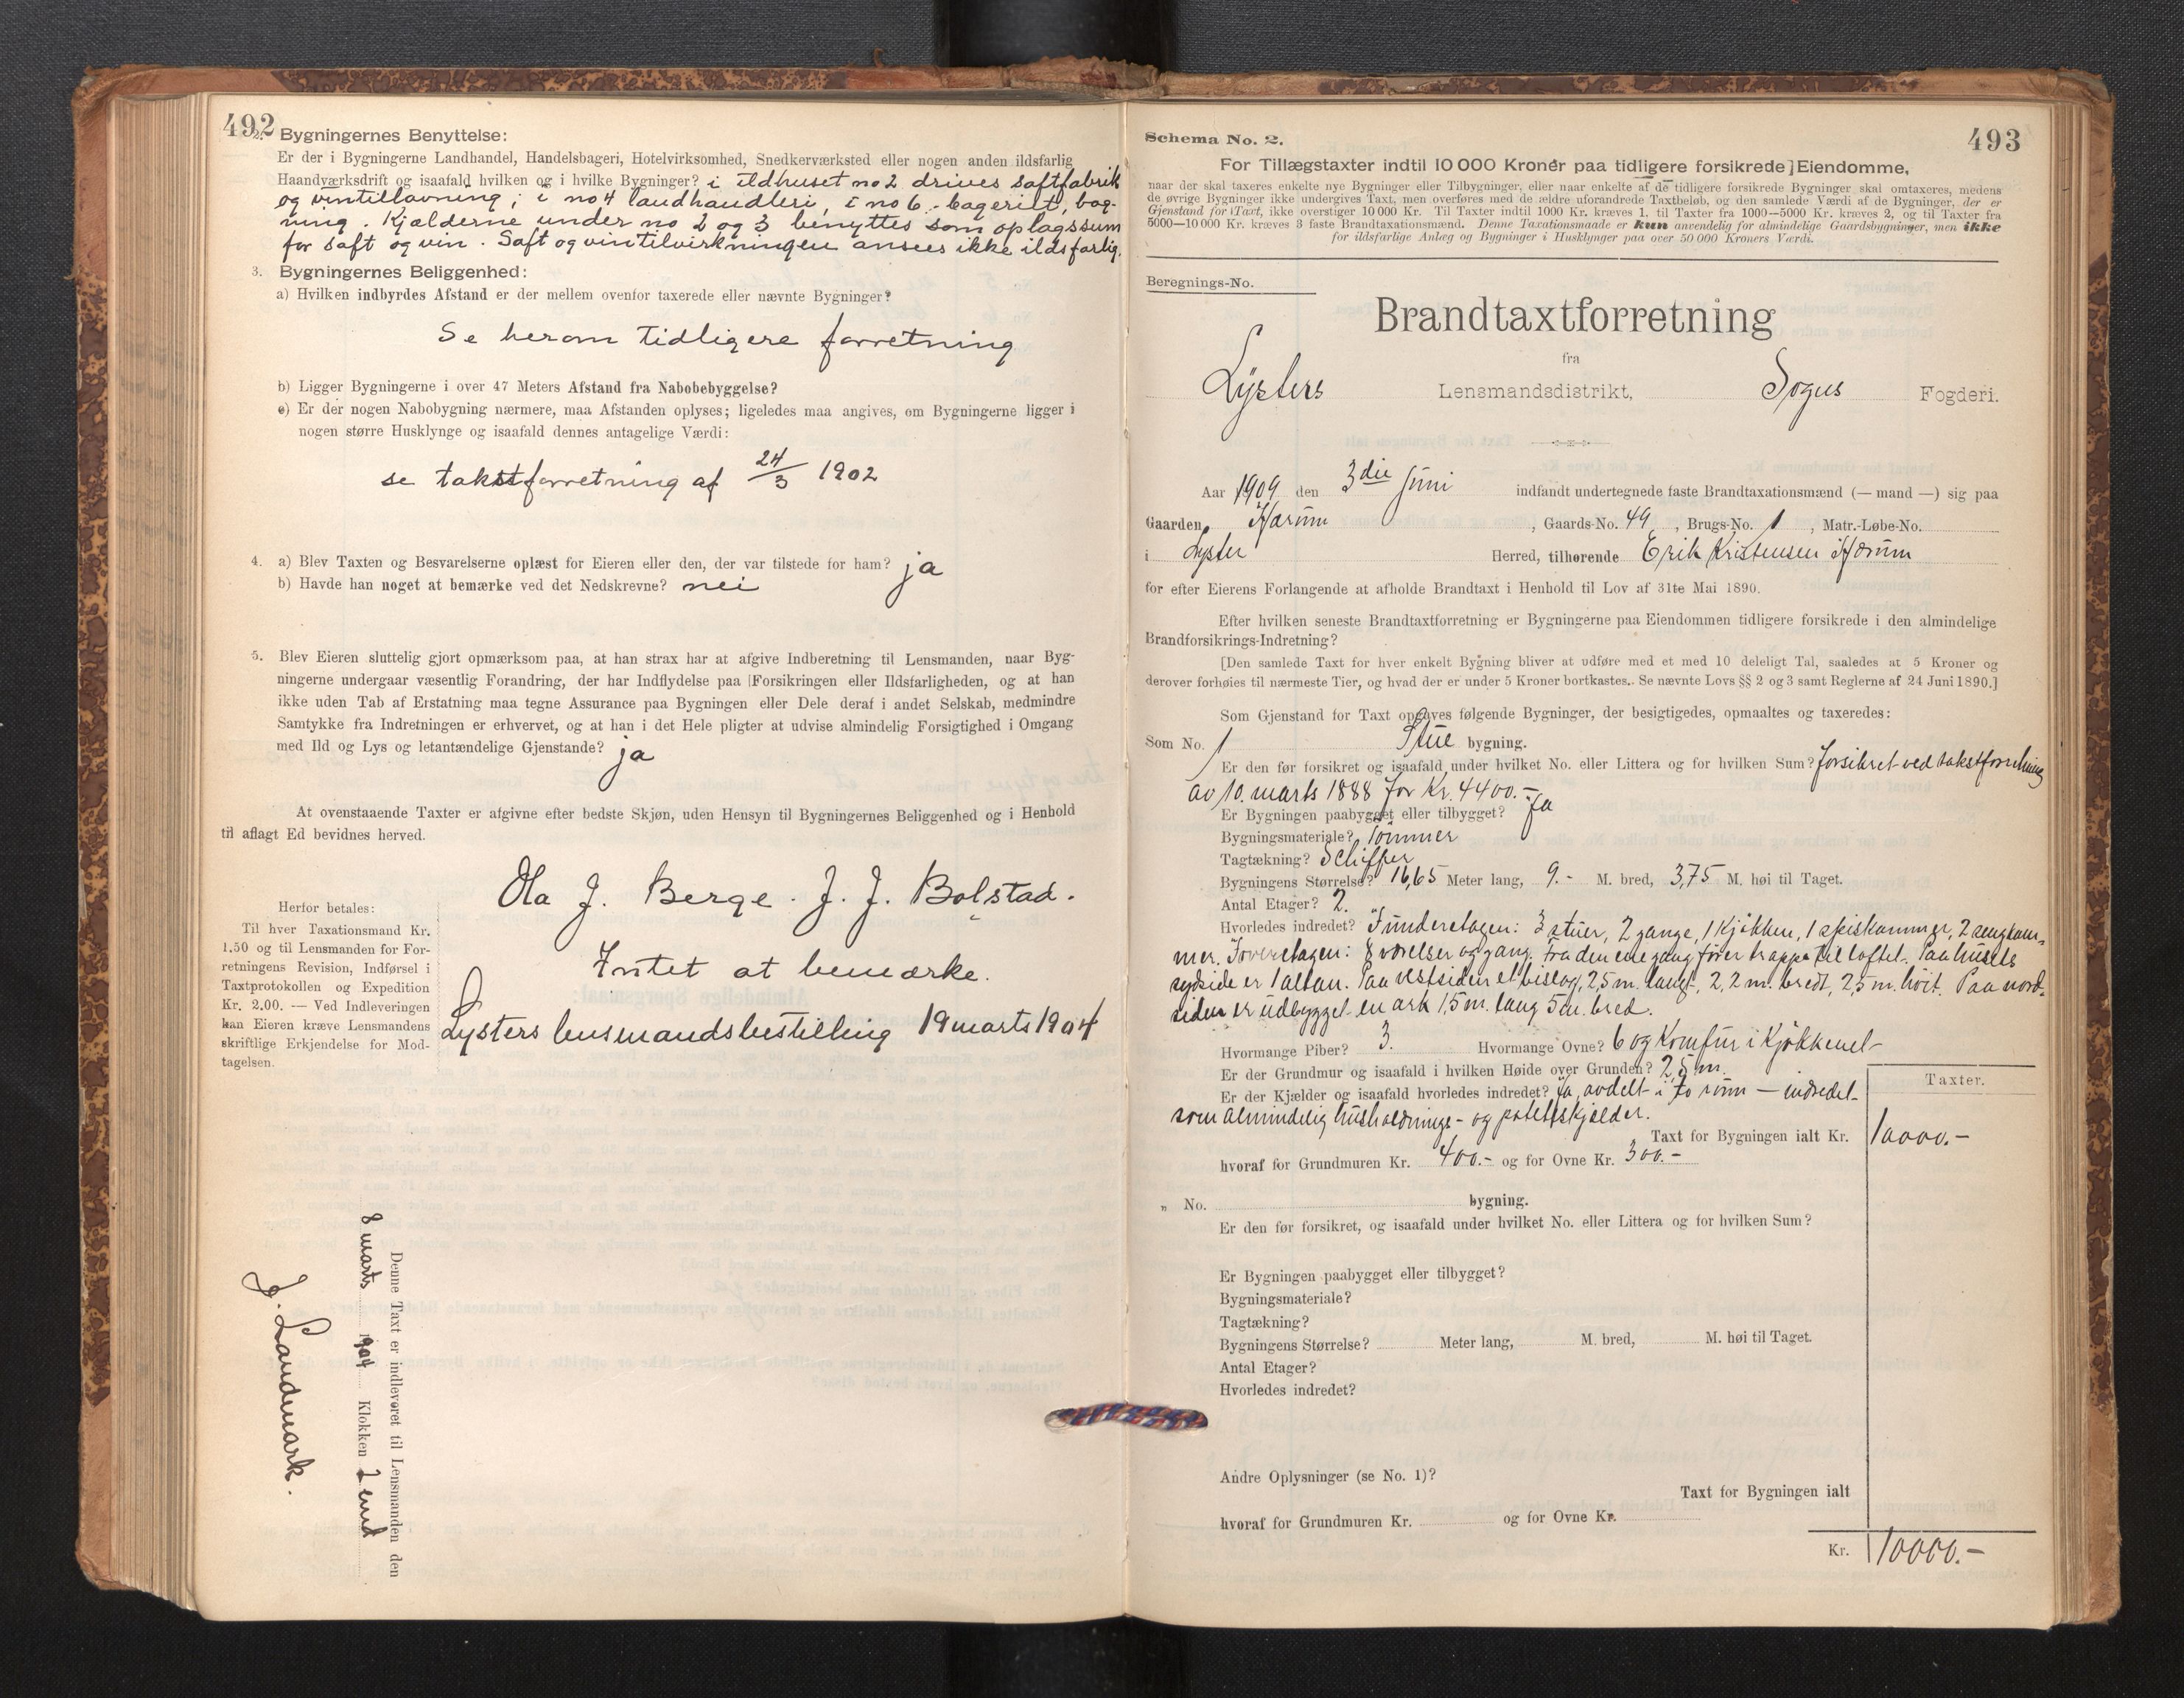 492
2. Bygningernes Benyttelse:
Er der i Bygningerne Landhandel, Handelsbageri, Hotelvirksomhed, Snedkerværksted eller nogen anden ildsfarlig
Haandværksdrift og isaafald hvilken og i hvilke Bygninger? i ildhuset no 2 drives saftfabrik
og vintillavning; i no 4 landhandleri, i no 6 - bageriet, bag-
ning. Kjælderne under no 2 og 3 benyttes som oplagssum
for saft og vin. Saft og vintilvirkningen ansees ikke ildsfarlig.
3. Bygningernes Beliggenhed:
a) Hvilken indbyrdes Afstand er der mellem ovenfor taxerede eller nævnte Bygninger?
Se herom tidligere forretning
b) Ligger Bygningerne i over 47 Meters Afstand fra Nabobebyggelse?
c) Er der nogen Nabobygning nærmere, maa Afstanden oplyses; ligeledes maa angives, om Bygningerne ligger i
nogen større Husklynge og isaafald dennes antagelige Værdi:
se takstforretning af 24/3 1902
4. a) Blev Taxten og Besvarelserne oplæst for Eieren eller den, der var tilstede for ham? ja
b) Havde han noget at bemærke ved det Nedskrevne? nei
5. Blev Eieren sluttelig gjort opmærksom paa, at han strax har at afgive Indberetning til Lensmanden, naar Byg-
ningerne undergaar væsentlig Forandring, der har Indflydelse paa Forsikringen eller Ildsfarligheden, og at han
ikke uden Tab af Erstatning maa tegne Assurance paa Bygningen eller Dele deraf i andet Selskab, medmindre
Samtykke fra Indretningen er erhvervet, og at han i det Hele pligter at udvise almindelig Forsigtighed i Omgang
med Ild og Lys og letantændelige Gjenstande? ja
At ovenstaaende Taxter er afgivne efter bedste Skjøn, uden Hensyn til Bygningernes Beliggenhed og i Henhold
til aflagt Ed bevidnes herved.
Ola J. Berge. J. J. Bolstad.
Intet at bemærke.
Lysters lensmandsbestilling 19 marts 1904
Herfor betales:
Til hver Taxationsmand Kr.
1.50 og til Lensmanden for For-
retningens Revision, Indførsel i
Taxtprotokollen og Expedition
Kr. 2.00. — Ved Indleveringen
kan Eieren kræve Lensmandens
skriftlige Erkjendelse for Mod-
tagelsen.
Denne Taxt er indleveret til Lensmanden den
8 marts 1904 Klokken 2 emd
J. Landmark.
Schema No. 2.
493
For Tillægstaxter indtil 10 000 Kroner paa tidligere forsikrede] Eiendomme,
naar der skal taxeres enkelte nye Bygninger eller Tilbygninger, eller naar enkelte af de tidligere forsikrede Bygninger skal omtaxeres, medens
de øvrige Bygninger ikke undergives Taxt, men overføres med de ældre uforandrede Taxtbeløb, og den samlede Værdi af de Bygninger, der er
Gjenstand for Taxt, ikke overstiger 10 000 Kr. Til Taxter indtil 1000 Kr. kræves 1, til Taxter fra 1000—5000 Kr. kræves 2, og til Taxter fra
5000—10 000 Kr. kræves 3 faste Brandtaxationsmænd. Denne Taxationsmaade er kun anvendelig for almindelige Gaardsbygninger, men ikke
for ildsfarlige Anlæg og Bygninger i Husklynger paa over 50 000 Kroners Værdi.
Beregnings-No.
Brandtaxtforretning
fra
Lysters Lensmandsdistrikt, Sogns Fogderi.
Aar 1909 den 3die Juni indfandt undertegnede faste Brandtaxationsmænd (— mand —) sig paa
Gaarden Hærum, Gaards-No. 49, Brugs-No. 1, Matr.-Løbe-No.
i Lyster Herred, tilhørende Erik Kristensen Hærum
for efter Eierens Forlangende at afholde Brandtaxt i Henhold til Lov af 31te Mai 1890.
Efter hvilken seneste Brandtaxtforretning er Bygningerne paa Eiendommen tidligere forsikrede i den almindelige
Brandforsikrings-Indretning?
[Den samlede Taxt for hver enkelt Bygning bliver at udføre med et med 10 deleligt Tal, saaledes at 5 Kroner og
derover forhøies til nærmeste Tier, og hvad der er under 5 Kroner bortkastes. Se nævnte Lovs §§ 2 og 3 samt Reglerne af 24 Juni 1890.]
Som Gjenstand for Taxt opgaves følgende Bygninger, der besigtigedes, opmaaltes og taxeredes:
Som No. 1 Stue bygning.
Er den før forsikret og isaafald under hvilket No. eller Littera og for hvilken Sum? Forsikret ved takstforretning
av 10. marts 1888 for Kr. 4400.-
Er Bygningen paabygget eller tilbygget? Ja
Bygningsmateriale? Tømmer
Tagtækning? Schiffer
Bygningens Størrelse? 16,65 Meter lang, 9.- M. bred, 3,75 M. høi til Taget.
Antal Etager? 2.
Hvorledes indredet? I underetagen: 3 stuer, 2 gange, 1 kjøkken, 1 spiskammer, 2 sengkam-
mer. I overetagen: 8 værelser og gang. Fra den ene gang fører trappe til loftet. Paa husets
sydside er 1 altan. Paa vestsiden et bislag, 2,5 m. langt, 2,2 m. bredt, 2,5 m. høit. Paa nord-
siden er udbygget en ark 1,5 m. lang 5 m. bred.
Hvormange Piber? 3. Hvormange Ovne? 6 og Komfur i Kjøkkenet
Er der Grundmur og isaafald i hvilken Høide over Grunden? 2,5 m.
Er der Kjælder og isaafald hvorledes indredet? Ja, avdelt i to rum — indredet
som almindelig husholdnings- og potetskjælder.
Taxter.
Taxt for Bygningen ialt Kr. 10000.-
hvoraf for Grundmuren Kr. 400.- og for Ovne Kr. 300.-
„ No. bygning.
Er den før forsikret, og isaafald under hvilket No. eller Littera og for hvilken Sum?
Er Bygningen paabygget eller tilbygget?
Bygningsmateriale?
Tagtækning?
Bygningens Størrelse? Meter lang, M. bred, M. høi til Taget.
Antal Etager?
Hvorledes indredet?
Andre Oplysninger (se No. 1)?
Taxt for Bygningen ialt
hvoraf for Grundmuren Kr. og for Ovne Kr.
Kr. 10000.-